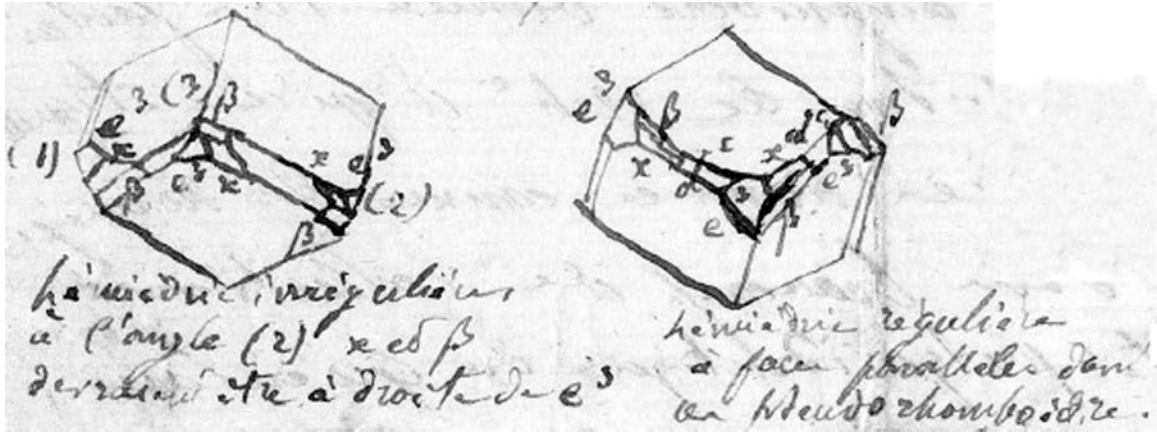 3 (3) β
e x
(1)
β e³ x
x e³
(2)
β
hémiédrie irrégulière
à l'angle (2) x et β
devraient être à droite de e³
e³ β
x d x x d β
e³
e³ β
hémiédrie régulière
à faces parallèles dans
un pseudorhomboèdre.